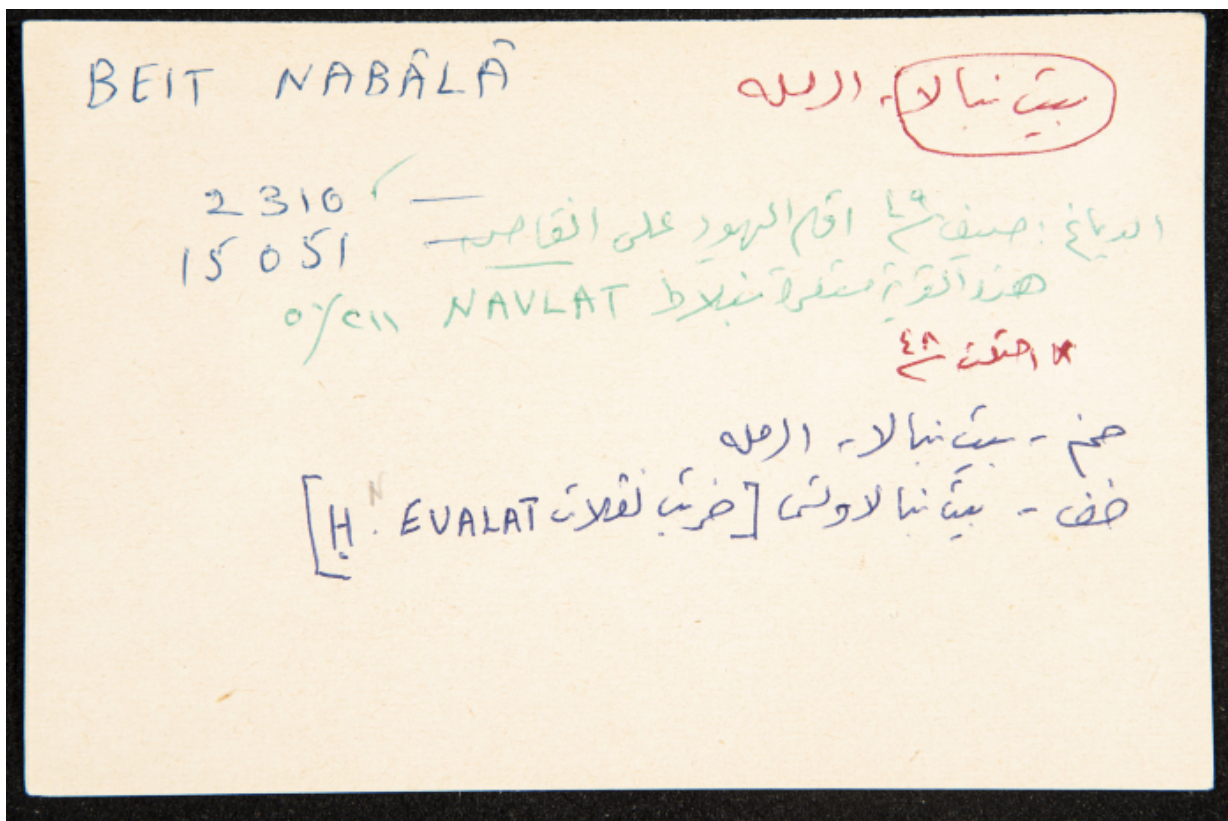 BEIT NABÂLÂ
بيت نبالا - الرمله
2310
15051
الدباغ: صيف ٤٩ اقام اليهود على انقاض
هذه القرية مستعمرة نبلاط NAVLAT ٥/٥٢١١
احتلت ٤٨
صخ - بيت نبالا - الرمله
خف - بيت نبالا وتسمى [خربت نفلات H. EVALAT]